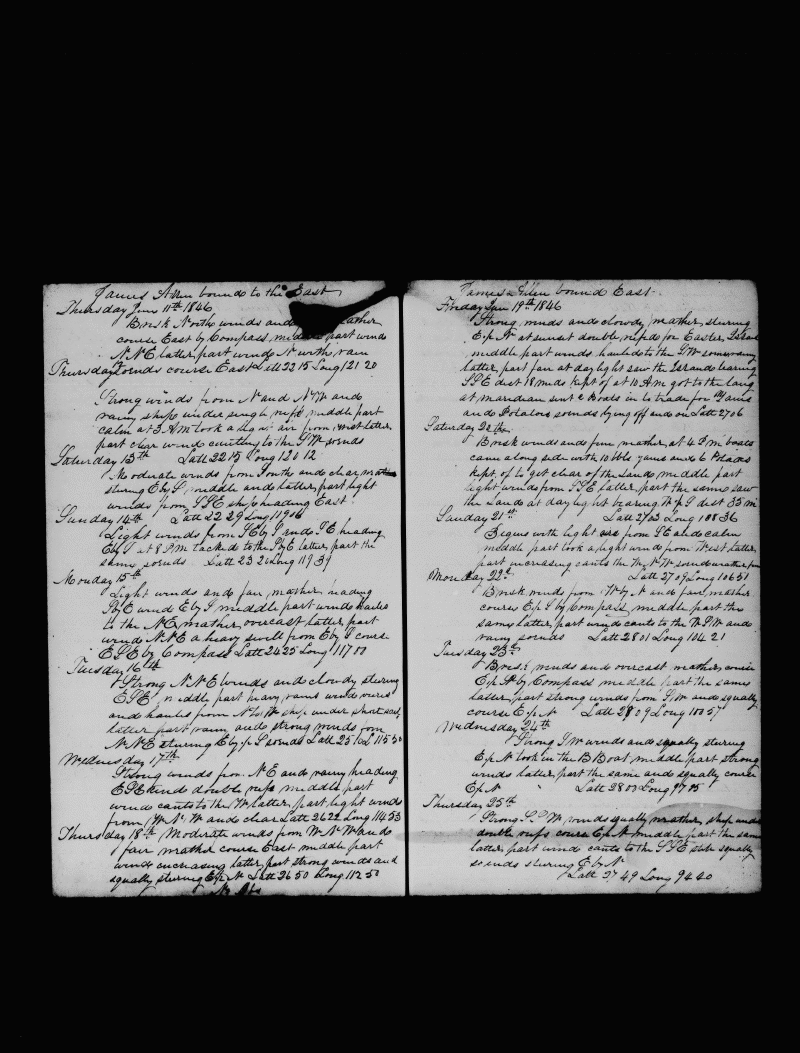 James Allen bound to the East
Thursday June 11th 1846
Brisk North winds and
course East by Compass middle part winds
NNE latter part winds N with rain
Thursday Sounds course East Latt 22 15 Long 121 20
Strong winds from N and NW and
rainy ship under single reefs middle part
calm at 3 AM took a light air from West latter
part clear wind canting to the SW sounds
Saturday 13th Latt 22 15 Long 120 12
Moderate winds from South and clear
stering E by S middle and latter part light
winds from SSE ship heading East
Sunday 14th Latt 22 29 Long 119 06
Light winds from SE by S and SE heading
E by S at 8 PM tacked to the S by E latter part the
same sounds Latt 23 21 Long 119 39
Monday 15th
Light winds and fair wather heading
S by E wind E by S middle part wind hauled
to the NE wather overcast latter part
winds NNE a heavy swell from E by S course
ESE by Compass Latt 24 25 Long 117 00
Tuesday 16th
Strong NNE winds and cloudy stering
ESE middle part heavy rains wind veers
and haules from N to W ship under short sail
latter part rainy and strong winds from
NNE stering E by S sounds Latt 25 16 L 115 50
Wednesday 17th
Strong winds from NE and rainy heading
ESE and double reefs middle part
wind cants to the W latter part light winds
from WNW and clear Latt 26 22 Long 114 53
Thursday 18th Moderate winds from WNW and
fair wather course East middle part
winds increasing latter part strong winds and
squally stering E by N Latt 26 50 Long 112 50
James Allen bound East
Friday June 19th 1846
Strong winds and clowdy wather stering
E by N at sunset double reefed for Easter Island
middle part winds hauled to the SW some rainy
latter part fair at day light saw the Island bearing
SSE dist 18 miles kept of at 10 AM got to the land
at maridian sent 2 Boats in to trade for Yams
and Potatoes sounds lying off and on Latt 27 06
Saturday 20th
Brisk winds and fine wather at 4 PM boats
came along side with 10 bbls yams and 6 Plains
kept of to get clear of the Land middle part
light winds from SSE latter part the same saw
the Land at day light bearing W by S dist 35 m
Sunday 21st Latt 27 23 Long 108 36
Begins with light from SE and calm
middle part took a light wind from West latter
part increasing cants the WNW sounds wather fair
Monday 22d Latt 27 09 Long 106 51
Brisk winds from W by N and fair wather
course E by S by Compass middle part the
same latter part wind cants to the WSW and
rainy sounds Latt 28 01 Long 104 21
Tuesday 23d
Brisk winds and overcast wather course
E by N by Compass middle part the same
latter part strong winds from SW and squally
course E by N Latt 28 09 Long 100 57
Wednesday 24th
Strong SW winds and squally stering
E by N took in the B Boat middle part strong
winds latter part the same and squally course
E by N Latt 28 00 Long 97 05
Thursday 25th
Strong SSW winds squally wather ship under
double reefs course E by N middle part the same
latter part wind cants to the SSE still squally
sounds stering E by N
Latt 27 49 Long 94 40